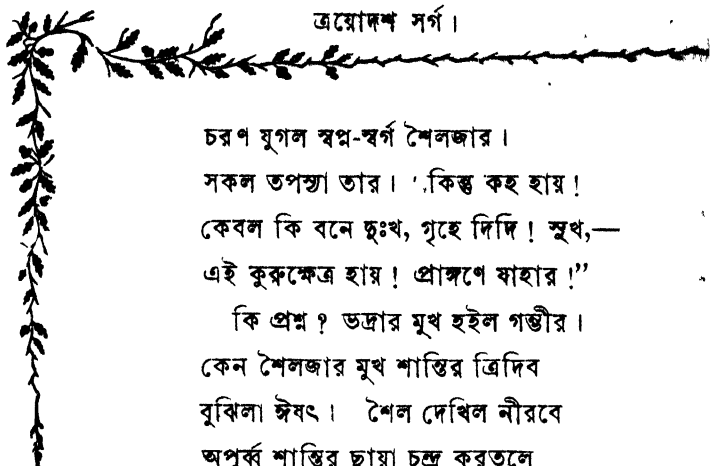 ত্রয়োদশ সর্গ।
চরণ যুগল স্বপ্ন-স্বর্গ শৈলজার।
সকল তপস্যা তার। “কিন্তু কহ হায়!
কেবল কি বনে দুঃখ, গৃহে দিদি! সুখ,—
এই কুরুক্ষেত্র হায়! প্রাঙ্গণে যাহার!”
কি প্রশ্ন? ভদ্রার মুখ হইল গম্ভীর।
কেন শৈলজার মুখ শান্তির ত্রিদিব
বুঝিলা ঈষৎ। শৈল দেখিল নীরবে
অপূর্ব্ব শান্তির ছায়া চন্দ্র করতলে